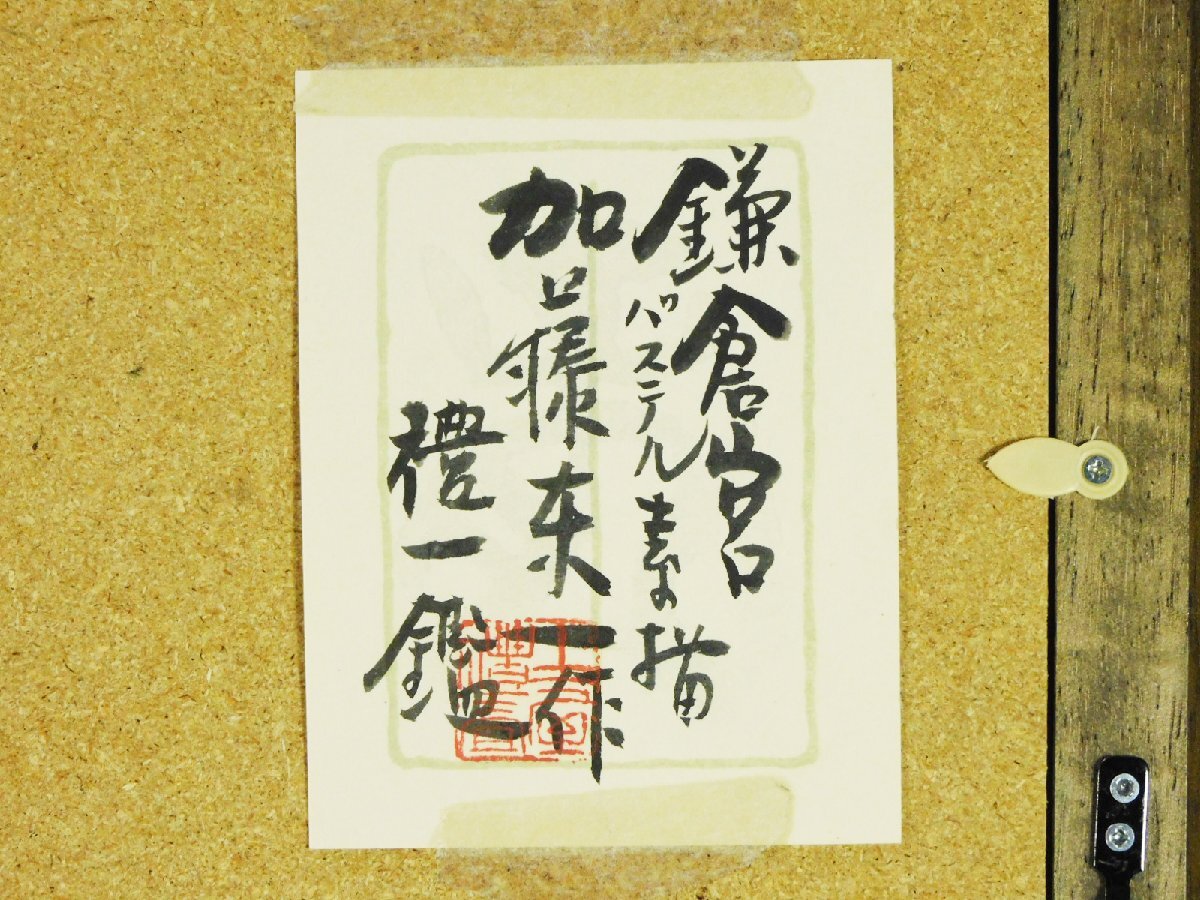 鎌倉宮
パステル素描
加藤東一作
禮一鑑